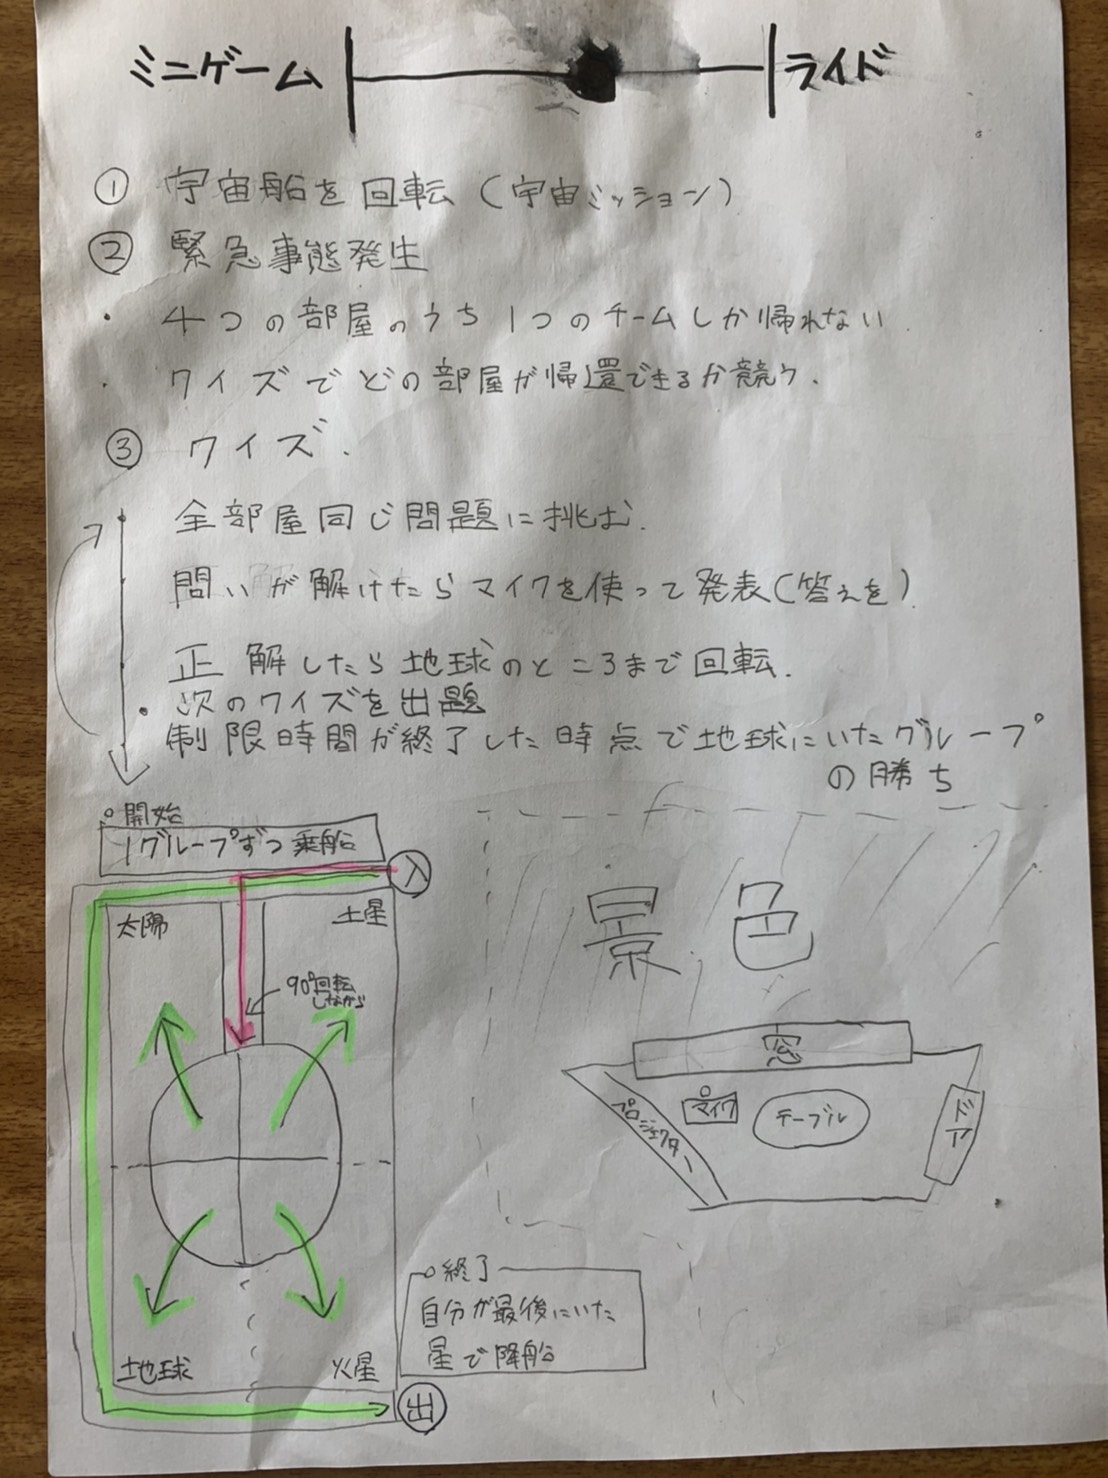 ミニゲーム
ライド
① 宇宙船を回転（宇宙ミッション）
② 緊急事態発生
・ 4つの部屋のうち1つのチームしか帰れない
・ クイズでどの部屋が帰還できるか競う.
③ クイズ.
全部屋同じ問題に挑む.
問いが解けたらマイクを使って発表（答えを）
正解したら地球のところまで回転.
・次のクイズを出題
制限時間が終了した時点で地球にいたグループ
の勝ち
開始
1グループずつ乗船
入
太陽
土星
90°回転
しながら
地球
火星
出
終了
自分が最後にいた
星で降船
景色
窓
プロジェクター
マイク
テーブル
ドア